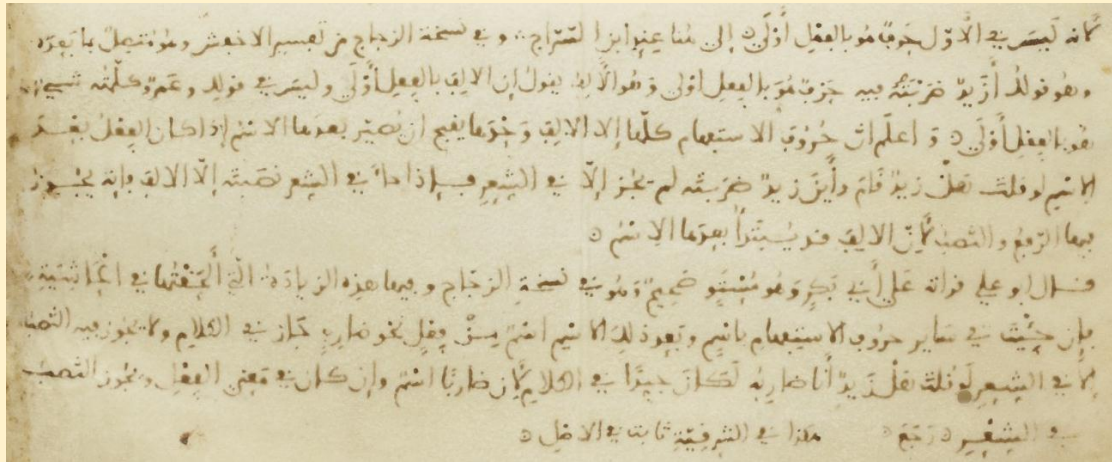 لأنه ليس في الأول حرف هو بالفعل أولى إلى هنا عند ابن السراج وفي نسخة الزجاج من تفسير الأخفش وهو متصل بما بعده
وهو قولك أزيدٌ ضربته ففيه حرف هو بالفعل أولى وهو الألف يقول إن الألف بالفعل أولى وليس في قولك وعمرو كلمته شيء
هو بالفعل أولى واعلم أن حروف الاستفهام كلها إلا الألف وحدها يقبح أن يصير بعدها الاسم إذا كان الفعل بعد
الاسم لو قلت هل زيدٌ قام وأين زيدٌ ضربته لم يجز إلّا في الشعر فإذا جاء في الشعر نصبته إلّا الألف فإنه يجوز
فيها الرفع والنصب لأنّ الألف قد يُبتدأ بعدها الاسم
قال أبو علي قراته على أبي بكر وهو صحيح وهو في نسخة الزجاج وفيها هذه الزيادة التي ألحقتها في الحاشية
فإن جئت في ساير حروف الاستفهام باسم وبعد ذلك الاسم اسم من فعل نحو ضارب جاز في الكلام ولا يجوز فيه النصب
إلا في الشعر لو قلت هل زيدٌ أنا ضاربه لكان جيدًا في الكلام لأن ضاربًا اسم وإن كان في معنى الفعل ويجوز النصب
في الشعر رجع هكذا في الشرقية ثابت في الأصل